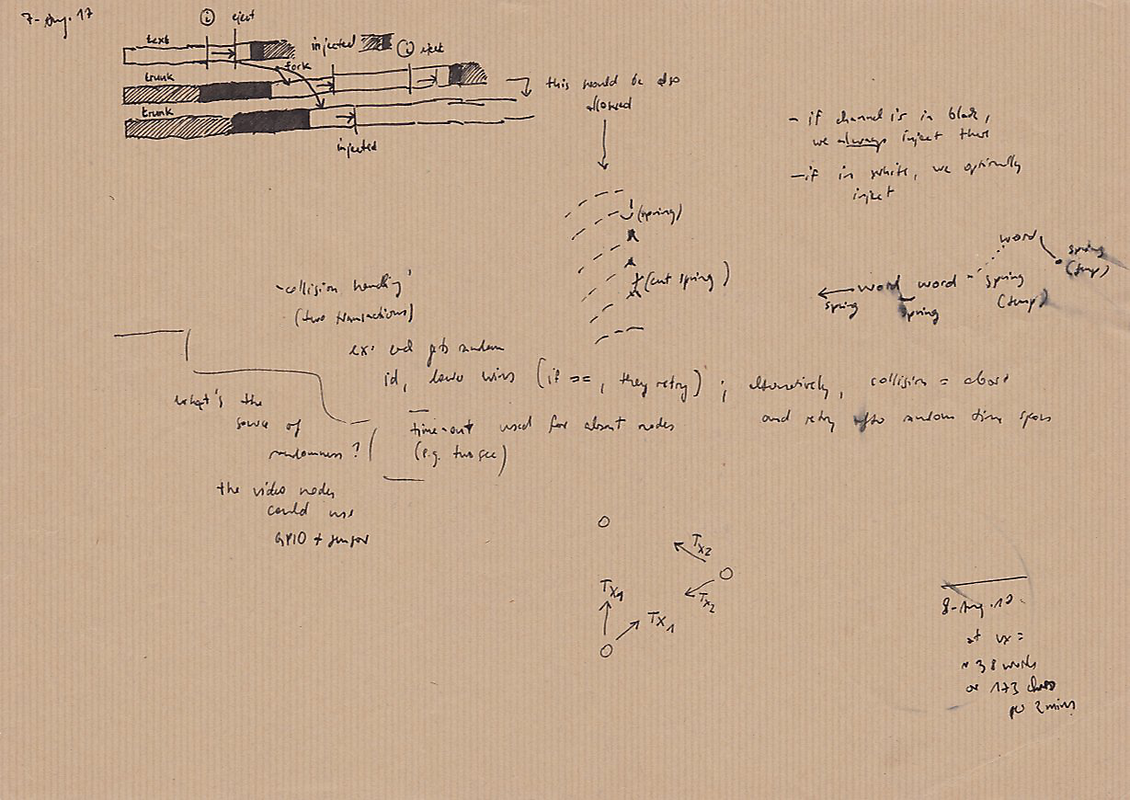 7-Aug.17
i eject
text
injected
i eject
fork
trunk
trunk
injected
this would be also
allowed
- if channel is in black,
we always inject there
- if in white, we optionally
inject
(spring)
(cut spring)
word
spring
(tmp)
word word - spring
(temp)
spring spring
- collision handling
(two transactions)
ex. end gets random
id, lower wins (if ==, they retry); alternatively, collision = abort
and retry after random time spans
what's the
source of
randomness?
time-out used for absent nodes
(e.g. two sec)
the video nodes
could use
GPIO + sensor
Tx2
Tx2
Tx1
Tx1
8-Aug.17
at vx =
~ 38 words
or 173 chars
per 2 mins